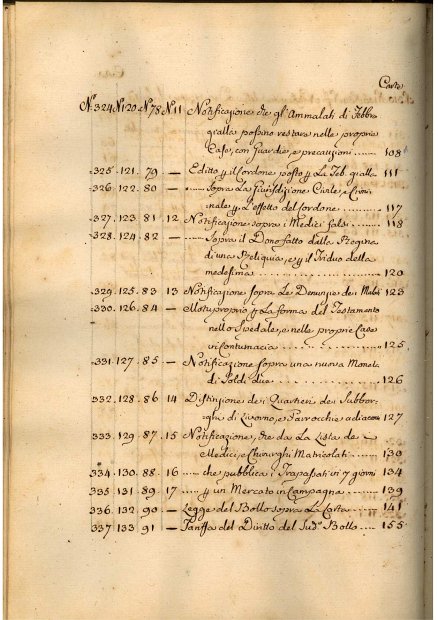 Carte
Nº 324 Nº 120 Nº 78 Nº 11 Notificazione che gl'Ammalati di Febbre
gialla possino restare nelle proprie
Case, con Guardie, e precauzioni ..... 108
325. 121. 79 — Editto p il Cordone posto p La Feb. gialla 111
326. 122. 80 — — Sopra La Giurisdizione Civile, e Crimi-
nale p L'effetto del Cordone ..... 117
327. 123. 81 12 Notificazione sopra i Medici falsi ... 118
328. 124. 82 — — Sopra il Dono fatto dalla Regina
di una Reliquia, e p il Triduo della
medesima ..... 120
329. 125. 83 13 Notificazione sopra Le Denunzie dei Malati 123
330. 126. 84 — Motuproprio p La forma del Testamento
nello Spedale, e nelle proprie Case
in Contumacia ..... 125
331. 127. 85 — Notificazione sopra una nuova Moneta
di Soldi Due ..... 126
332. 128. 86 14 Distinzione dei Quartieri dei Subbor-
ghi di Livorno, e Parrocchie adiacenti 127
333. 129. 87. 15 Notificazione, che da La Lista de
Medici, e Chirurghi Matricolati ..... 130
334. 130. 88. 16 — che pubblica i Trapassati in 7 giorni 134
335 131 89. 17 — p un Mercato in Campagna ..... 139
336. 132. 90 — Legge del Bollo sopra La Carta ..... 141
337 133 91 — Tariffa del Diritto del Sud.º Bollo ..... 155